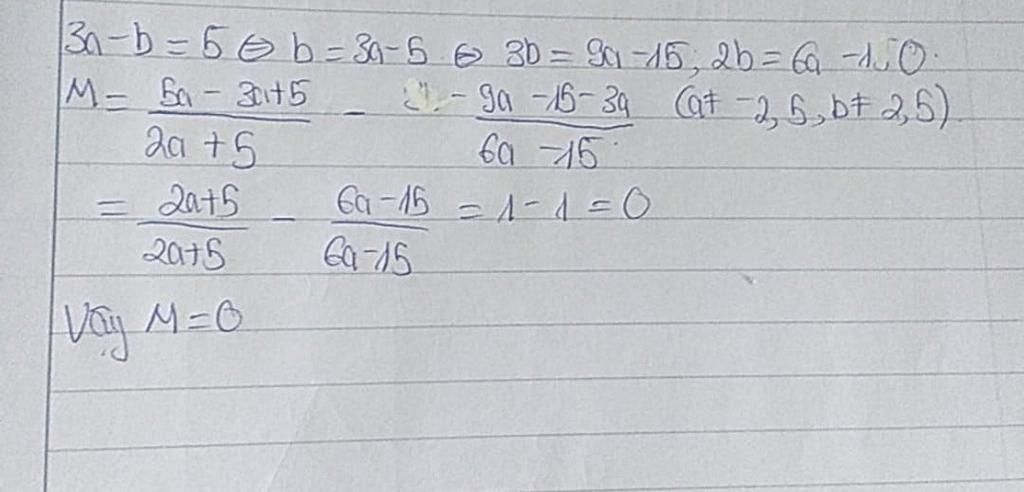 3a - b = 5 ⇔ b = 3a - 5 ⇔ 3b = 9a - 15; 2b = 6a - 10.
M = \frac{5a - 3a + 5}{2a + 5} - \frac{9a - 15 - 3a}{6a - 15} (a ≠ -2,5, b ≠ 2,5)
= \frac{2a+5}{2a+5} - \frac{6a-15}{6a-15} = 1 - 1 = 0
Vậy M = 0